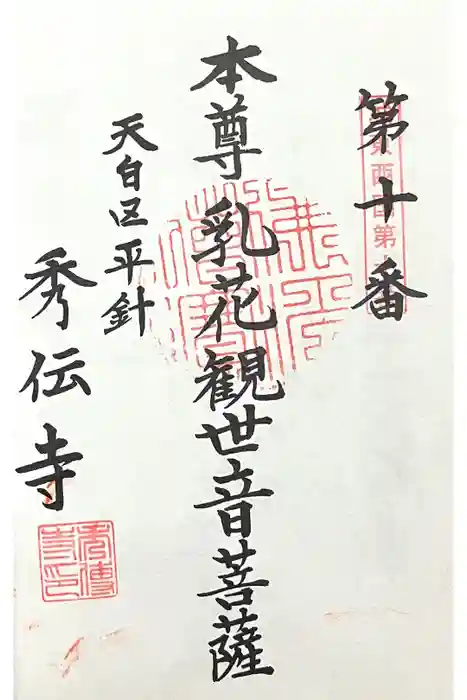 第十番
本尊乳花観世音菩薩
天白区平針
秀伝寺